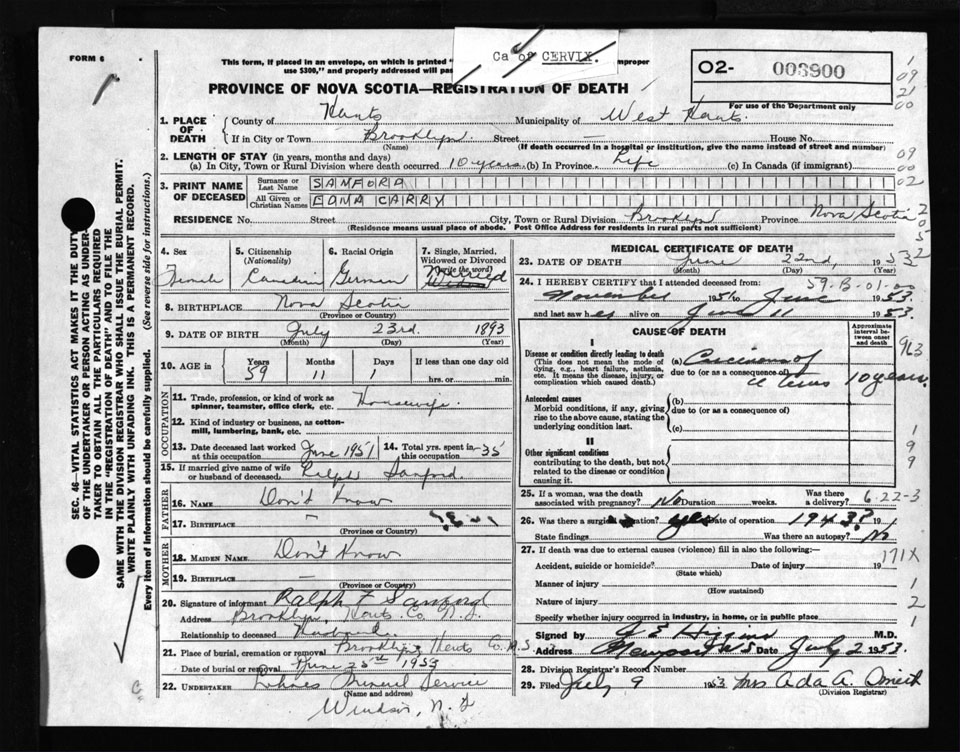 FORM 6
This form, if placed in an envelope, on which is printed " improper
use $300," and properly addressed will pas
Ca of CERVIX
O2- 003900
For use of the Department only
PROVINCE OF NOVA SCOTIA—REGISTRATION OF DEATH
1. PLACE OF DEATH County of Hants Municipality of West Hants
If in City or Town Brooklyn Street — House No.
(Name) (If death occurred in a hospital or institution, give the name instead of street and number)
2. LENGTH OF STAY (in years, months and days)
(a) In City, Town or Rural Division where death occurred 10 years (b) In Province Life (c) In Canada (if immigrant)
3. PRINT NAME OF DECEASED Surname or Last Name SANFORD
All Given or Christian Names EDNA CARRY
RESIDENCE No. Street City, Town or Rural Division Brooklyn Province Nova Scotia
(Residence means usual place of abode. Post Office Address for residents in rural parts not sufficient)
4. Sex Female
5. Citizenship (Nationality) Canadian
6. Racial Origin German
7. Single, Married, Widowed or Divorced (Write the word) Married
8. BIRTHPLACE Nova Scotia
(Province or Country)
9. DATE OF BIRTH July 23rd. 1893
(Month) (Day) (Year)
10. AGE in Years Months Days If less than one day old
59 11 1 hrs. or min.
OCCUPATION
11. Trade, profession, or kind of work as spinner, teamster, office clerk, etc. Housewife
12. Kind of industry or business, as cotton-mill, lumbering, bank, etc.
13. Date deceased last worked at this occupation June 1951 14. Total yrs. spent in this occupation 35
15. If married give name of wife or husband of deceased. Ralph Sanford
FATHER
16. NAME Don't Know
17. BIRTHPLACE —
(Province or Country)
MOTHER
18. MAIDEN NAME Don't Know
19. BIRTHPLACE —
(Province or Country)
20. Signature of informant Ralph F Sanford
Address Brooklyn, Hants. Co. N.S.
Relationship to deceased Husband
21. Place of burial, cremation or removal Brooklyn Hants Co. N.S.
Date of burial or removal June 25th 1953
22. UNDERTAKER Funeral Service
(Name and address)
Windsor, N.S
MEDICAL CERTIFICATE OF DEATH
23. DATE OF DEATH June 22nd, 1953
(Month) (Day) (Year)
24. I HEREBY CERTIFY that I attended deceased from: 59-B-01-00
November 1951 to June 1953.
and last saw her alive on June 11 1953.
CAUSE OF DEATH
Approximate interval between onset and death
I
Disease or condition directly leading to death
(This does not mean the mode of dying, e.g., heart failure, asthenia, etc. It means the disease, injury, or complication which caused death.)
(a) Carcinoma of
due to (or as a consequence of) Uterus 10 years.
Antecedent causes
Morbid conditions, if any, giving rise to the above cause, stating the underlying condition last.
(b)
due to (or as a consequence of)
(c)
II
Other significant conditions
contributing to the death, but not related to the disease or condition causing it.
25. If a woman, was the death associated with pregnancy? No Duration weeks. Was there a delivery? 6-22-3
26. Was there a surgical operation? yes Date of operation 1943? 19
State findings Was there an autopsy? No
27. If death was due to external causes (violence) fill in also the following:— 171X
Accident, suicide or homicide? Date of injury 19
(State which)
Manner of injury
(How sustained)
Nature of injury
Specify whether injury occurred in industry, in home, or in public place
Signed by J E Higgins M.D.
Address Newport NS Date July 2 1953.
28. Division Registrar's Record Number
29. Filed July 9 1953 Mrs Ada A. Smith
(Division Registrar)
SEC. 46—VITAL STATISTICS ACT MAKES IT THE DUTY
OF THE UNDERTAKER OR PERSON ACTING AS UNDER-
TAKER TO OBTAIN ALL THE PARTICULARS REQUIRED
IN THE "REGISTRATION OF DEATH" AND TO FILE THE
SAME WITH THE DIVISION REGISTRAR WHO SHALL ISSUE THE BURIAL PERMIT.
WRITE PLAINLY WITH UNFADING INK. THIS IS A PERMANENT RECORD.
Every item of information should be carefully supplied. (See reverse side for instructions.)
1
09
21
00
09
00
02
2
0
5
2
963
1
9
9
1
2
1